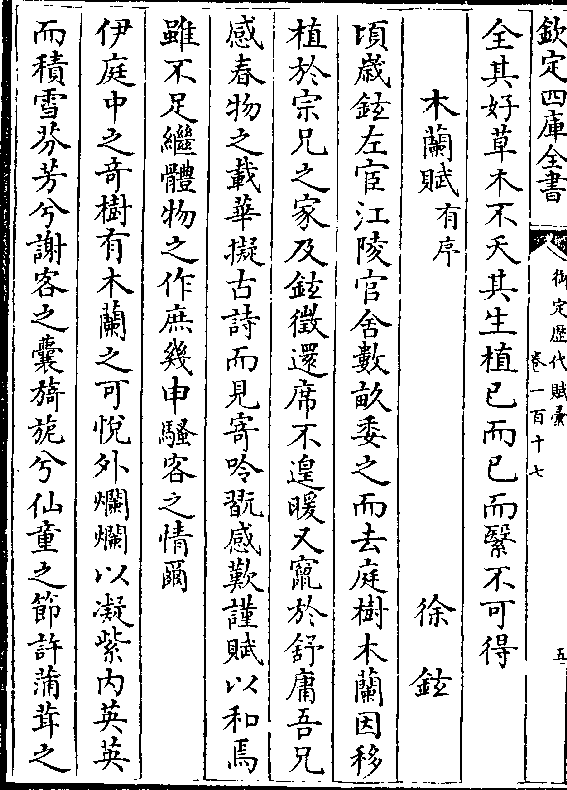 欽定四庫全書
御定歴代賦彙
卷一百十七
五
全其好草木不夭其生植已而已而繄不可得
木蘭賦有序
徐鉉
頃歳鉉左宦江陵官舍數畝委之而去庭樹木蘭因移
植於宗兄之家及鉉徵還席不遑暖又竄於舒庸吾兄
感春物之載華擬古詩而見寄吟翫感歎謹賦以和焉
雖不足繼體物之作庶幾申騷客之情爾
伊庭中之奇樹有木蘭之可悅外爛爛以凝紫内英英
而積雪芬芳兮謝客之囊旖旎兮仙童之節許蒲茸之